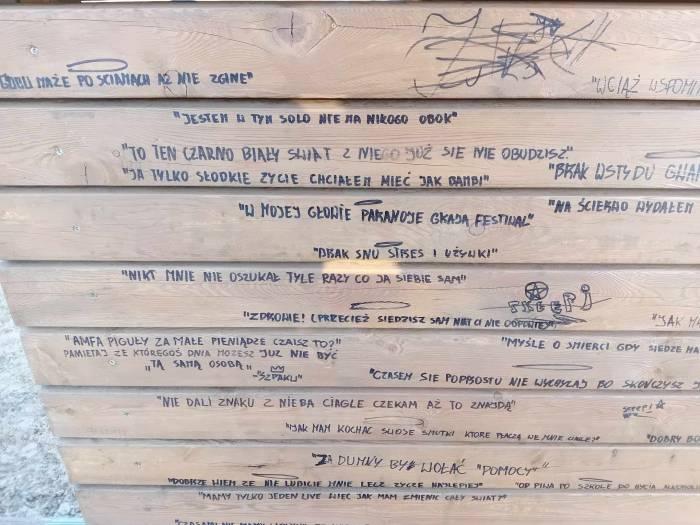 MAŻE PO ŚCIANACH AŻ NIE ZGINE"
"WCIĄŻ WSPOMI
"JESTEM W TYM SOLO NIE MA NIKOGO OBOK"
"TO TEN CZARNO BIAŁY ŚWIAT Z NIEGO JUŻ SIE NIE OBUDZISZ"
"JA TYLKO SŁODKIE ŻYCIE CHCIAŁEM MIEĆ JAK BAMBI"
"BRAK WSTYDU
"W MOJEJ GŁOWIE PARANOJE GRAJĄ FESTIWAL"
"NA ŚCIERWO WYDAŁEM
"BRAK SNU STRES I UŻYWKI"
"NIKT MNIE NIE OSZUKAŁ TYLE RAZY CO JA SIEBIE SAM"
"ZDROWIE! (PRZECIEŻ SIEDZISZ SAM NIKT CI NIE ODPOWIE)"
"JAK
"AMFA PIGUŁY ZA MAŁE PIENIĄDZE CZAISZ TO?"
PAMIETAJ ŻE KTÓREGOŚ DNIA MOŻESZ JUŻ NIE BYĆ
"TĄ SAMĄ OSOBĄ"
-SZPAKU"
"MYŚLE O ŚMIERCI GDY SIEDZE NA
"CZASEM SIE POPROSTU NIE WYCHYLAJ BO SKOŃCZYSZ
"NIE DALI ZNAKU Z NIEBA CIĄGLE CZEKAM AŻ TO ZNAJDĄ"
"JAK MAM KOCHAĆ SWOJE SMUTKI KTÓRE PŁACZĄ WE MNIE CIĄGLE?"
"DOBRY
"ZA DUMNY BY WOŁAĆ "POMOCY""
"DOBRZE WIEM ŻE NIE LUBICIE MNIE LECZ ŻYCZE NAJLEPIEJ"
"OD PIWA PO SZKOLE DO BYCIA
"MAMY TYLKO JEDEN LIVE WIEC JAK MAM ZMIENIĆ CAŁY ŚWIAT?"